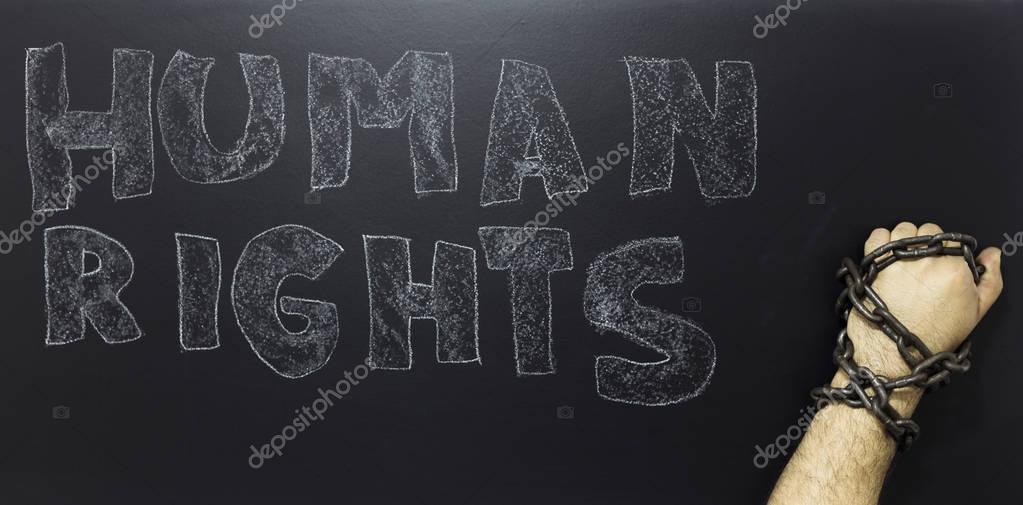 HUMAN
RIGHTS
depositphotos
depositphotos
depositphotos
depositphotos
depositphotos
depositphotos